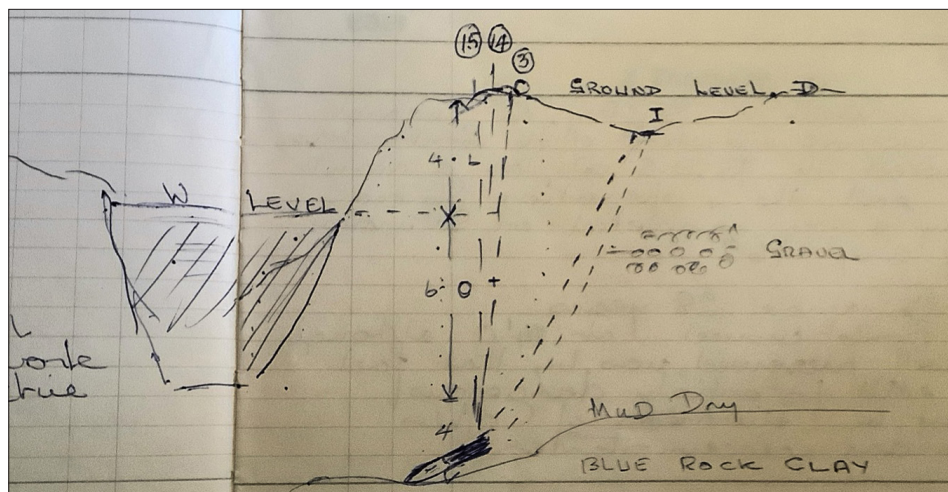 15 14 3
GROUND LEVEL
I
W LEVEL
4
6
GRAVEL
4
MUD Dry
BLUE ROCK CLAY